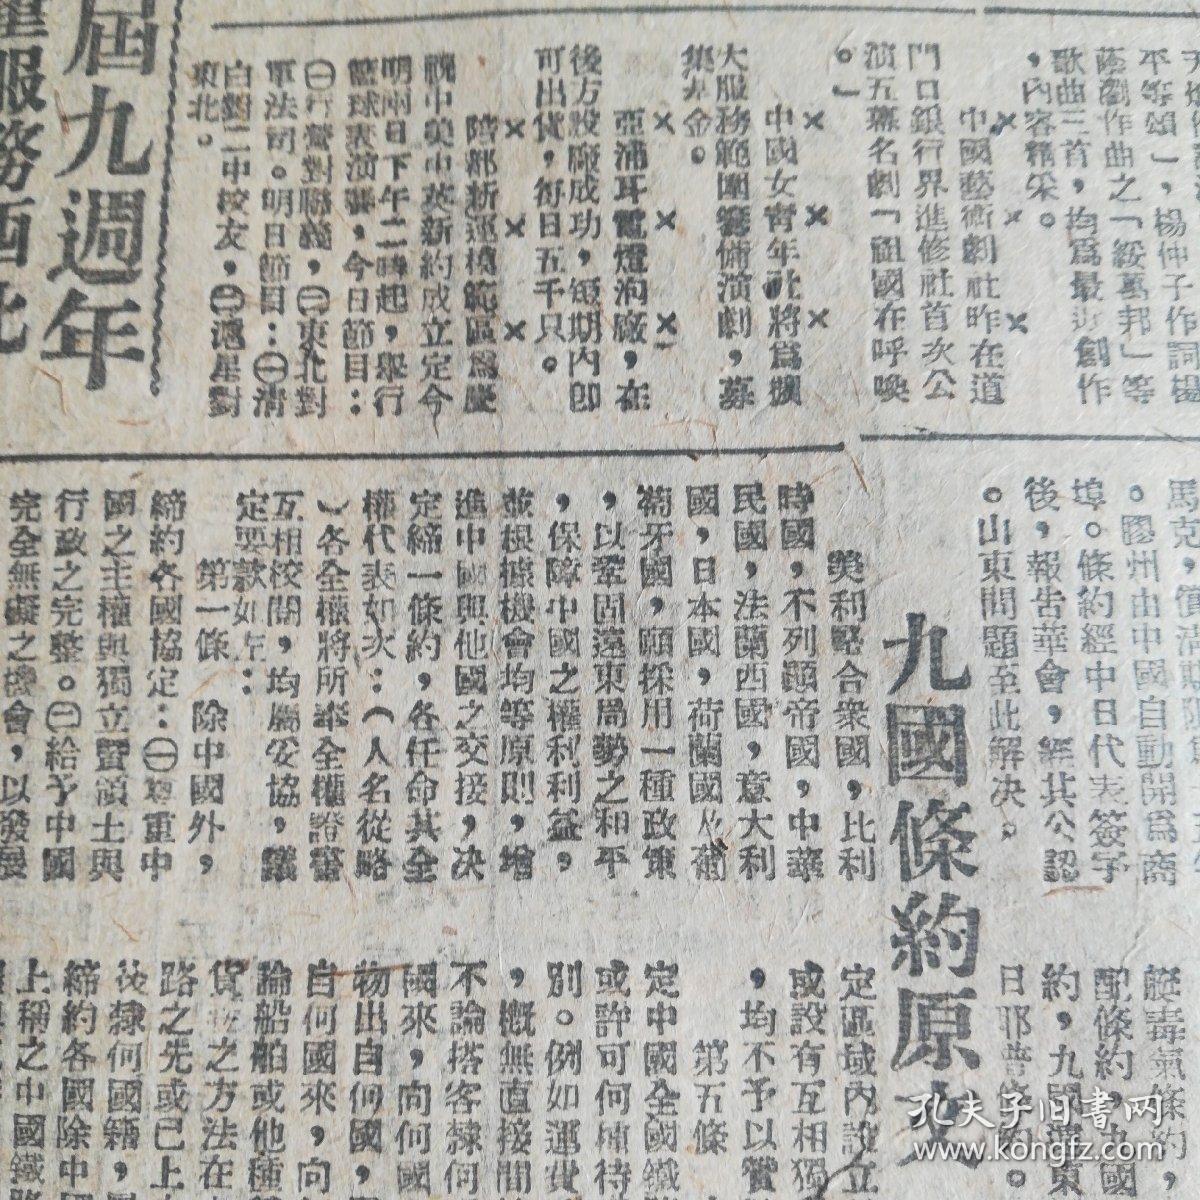 平等頌」,楊仲子作詞楊
蔭瀏作曲之「綏萬邦」等
歌曲三首,均爲最近創作
,內容精采。
× × ×
中國藝術劇社昨在道
門口銀行界進修社首次公
演五幕名劇「祖國在呼喚
。」
× × ×
中國女青年社將爲擴
大服務範圍籌備演劇,募
集基金。
× × ×
亞浦耳電燈泡廠,在
後方設廠成功,短期內卽
可出貨,每日五千只。
× × ×
陪都新運模範區爲慶
祝中美中英新約成立定今
明兩日下午二時起,舉行
籃球表演賽,今日節目:
㊀行營對聯義,㊁東北對
軍法司。明日節目:㊀清
白對二中校友,㊁滬星對
東北。
屆九週年
服務西北
。膠州由中國自動開爲商
埠。條約經中日代表簽字
後,報告華會,經其公認
。山東問題至此解决。
九國條約原文
美利堅合衆國,比利
時國,不列顛帝國,中華
民國,法蘭西國,意大利
國,日本國,荷蘭國及葡
萄牙國,願採用一種政策
,以鞏固遠東局勢之和平
,保障中國之權利利益,
並根據機會均等原則,增
進中國與他國之交接,决
定締一條約,各任命其全
權代表如次:(人名從略
)各全權將所奉全權證書
互相校閱,均屬妥協,議
定要款如左:
第一條　除中國外,
締約各國協定:㊀尊重中
國之主權與獨立暨領土與
行政之完整。㊁給予中國
完全無礙之機會,以發展
艇毒氣條約,
配條約,中國
約,九國
日耶普
定區域內設立
或設有互相獨
,均不予以贊
第五條
定中國全國鐵
或許可何種待
別。例如運費
,概無直接間
不論搭客隸何
國來,向何國
物出自何國,
自何國來,向
論船舶或他種
貨物之方法在
路之先或已上
後隸何國籍,
締約各國除中
上稱之中國鐵路
孔夫子旧書网
www.kongfz.com